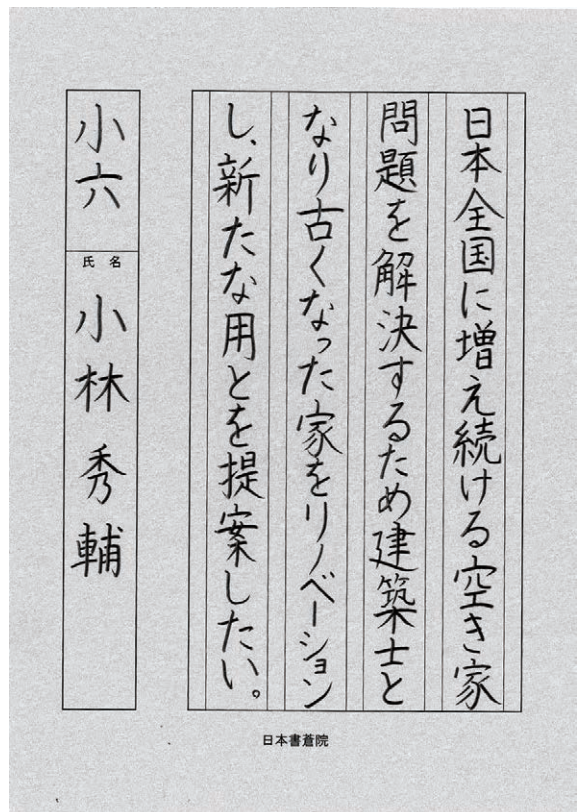 日本全国に増え続ける空き家
問題を解決するため建築士と
なり古くなった家をリノベーション
し、新たな用とを提案したい。
小六
氏名
小林秀輔
日本書蒼院